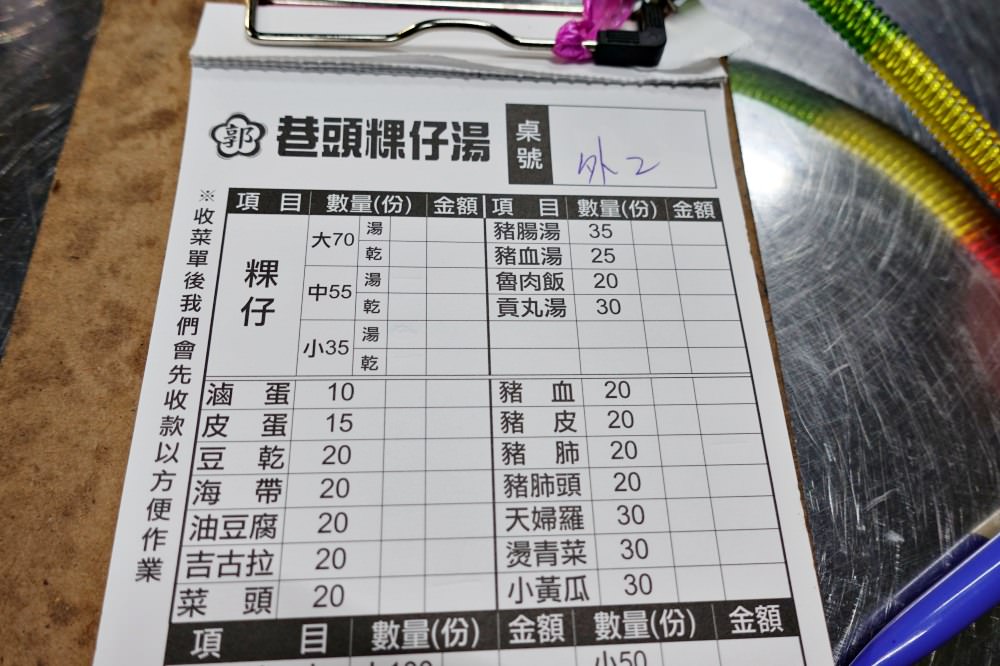 郭 巷頭粿仔湯 桌號 外2
※收菜單後我們會先收款以方便作業
項目 數量(份) 金額 項目 數量(份) 金額
粿仔
大70 湯 豬腸湯 35
乾 豬血湯 25
中55 湯 魯肉飯 20
乾 貢丸湯 30
小35 湯
乾
滷蛋 10 豬血 20
皮蛋 15 豬皮 20
豆乾 20 豬肺 20
海帶 20 豬肺頭 20
油豆腐 20 天婦羅 30
吉古拉 20 燙青菜 30
菜頭 20 小黃瓜 30
項目 數量(份) 金額 數量(份) 金額
小50